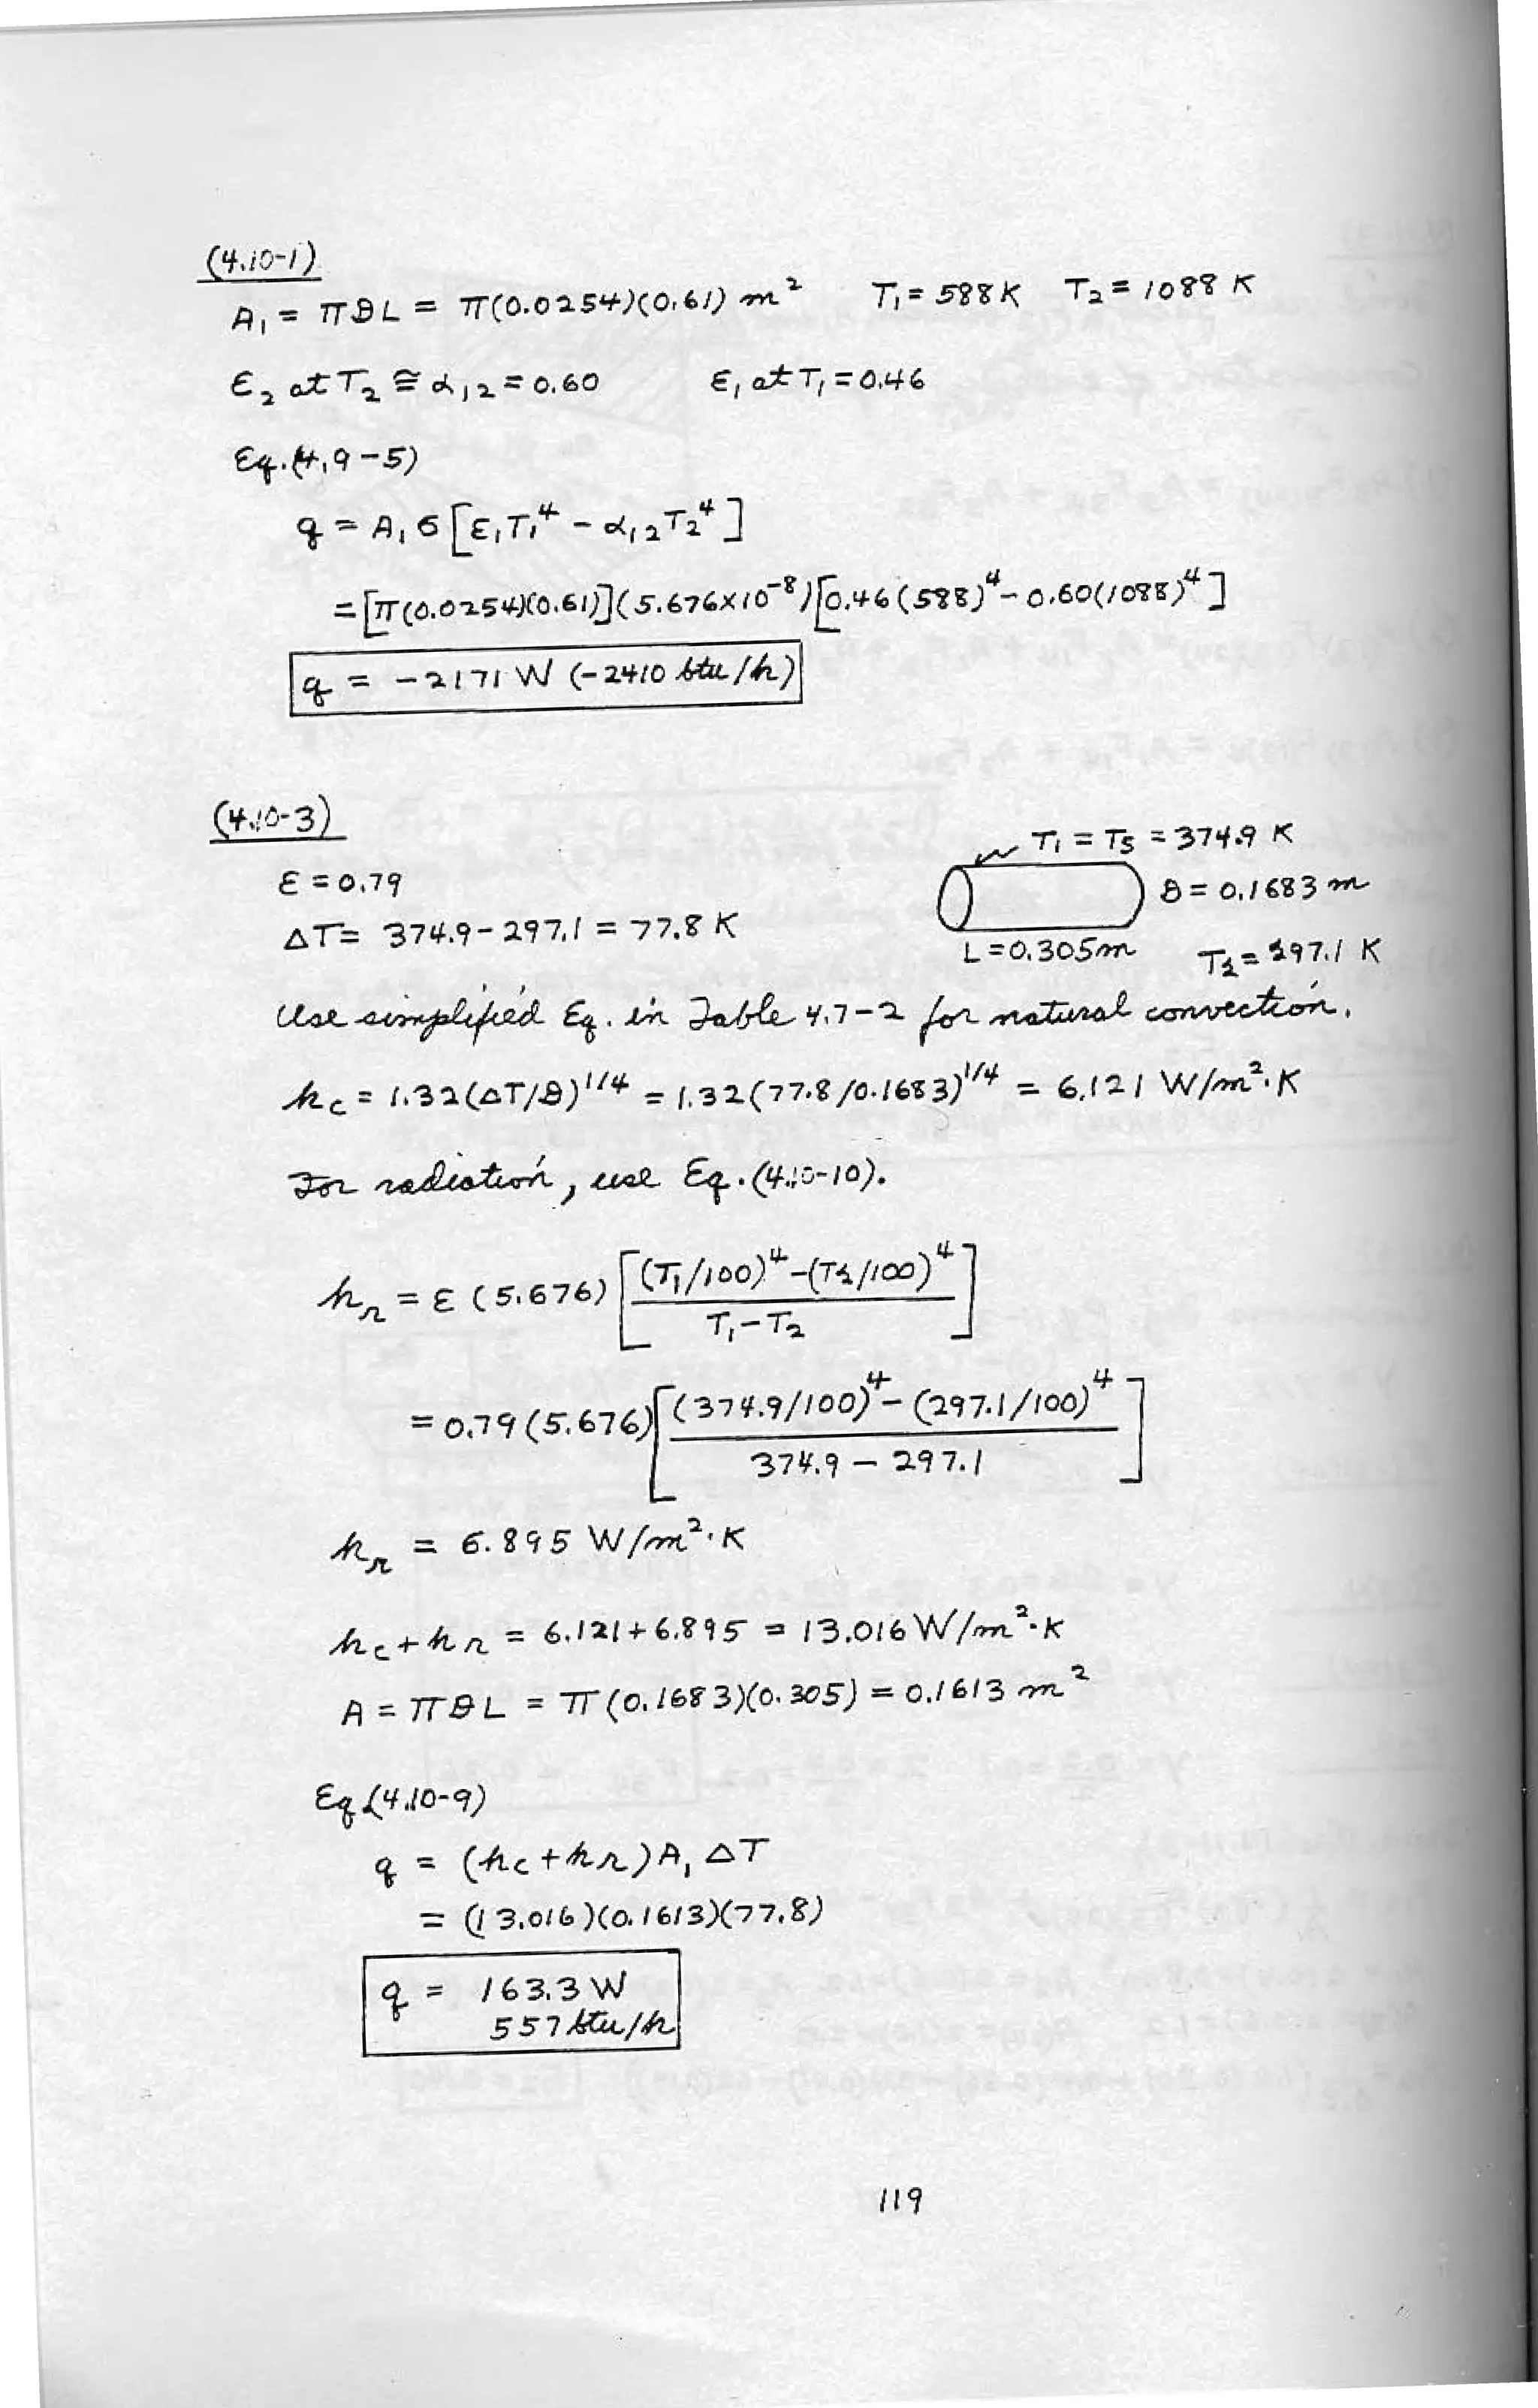 (4.10-1)
A₁ = πDL = π(0.0254)(0.61) m²   T₁ = 588 K   T₂ = 1088 K
ε₂ at T₂ ≅ α₁₂ = 0.60   ε₁ at T₁ = 0.46
Eq. (4.9-5)
q = A₁σ[ε₁T₁⁴ - α₁₂T₂⁴]
= [π(0.0254)(0.61)](5.676×10⁻⁸)[0.46(588)⁴ - 0.60(1088)⁴]
q = -2171 W (-2410 btu/h)
(4.10-3)
T₁ = T_S = 374.9 K
ε = 0.79
D = 0.1683 m
ΔT = 374.9 - 297.1 = 77.8 K
L = 0.305 m   T₂ = 297.1 K
Use simplified Eq. in Table 4.7-2 for natural convection.
h_c = 1.32(ΔT/D)^1/4 = 1.32(77.8/0.1683)^1/4 = 6.121 W/m²·K
For radiation, use Eq. (4.10-10).
h_r = ε(5.676)[((T₁/100)⁴ - (T₂/100)⁴) / (T₁ - T₂)]
= 0.79(5.676)[((374.9/100)⁴ - (297.1/100)⁴) / (374.9 - 297.1)]
h_r = 6.895 W/m²·K
h_c + h_r = 6.121 + 6.895 = 13.016 W/m²·K
A = πDL = π(0.1683)(0.305) = 0.1613 m²
Eq. (4.10-9)
q = (h_c + h_r)A₁ ΔT
= (13.016)(0.1613)(77.8)
q = 163.3 W
557 btu/h
119